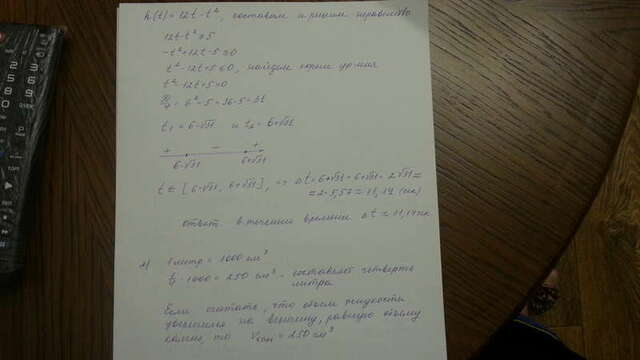 h(t) = 12t - t², составим и решим неравенство
12t - t² ≥ 5
-t² + 12t - 5 ≥ 0
t² - 12t + 5 ≤ 0, найдем корни ур-ния
t² - 12t + 5 = 0
= 6² - 5 = 36 - 5 = 31
t₁ = 6 - √31 и t₂ = 6 + √31
+ - +
6-√31 6+√31
t ∈ [6-√31, 6+√31], => Δt = 6+√31 - 6+√31 = 2√31 ≈
≈ 2 · 5,57 ≈ 11,14
ответ в течении времени Δt ≈ 11,14
1 литр = 1000 см³
· 1000 = 250 см³ - составляет четверть
литра
Если считать, что объем жидкости
на величину, равную объему
камня, то V = 250 см³